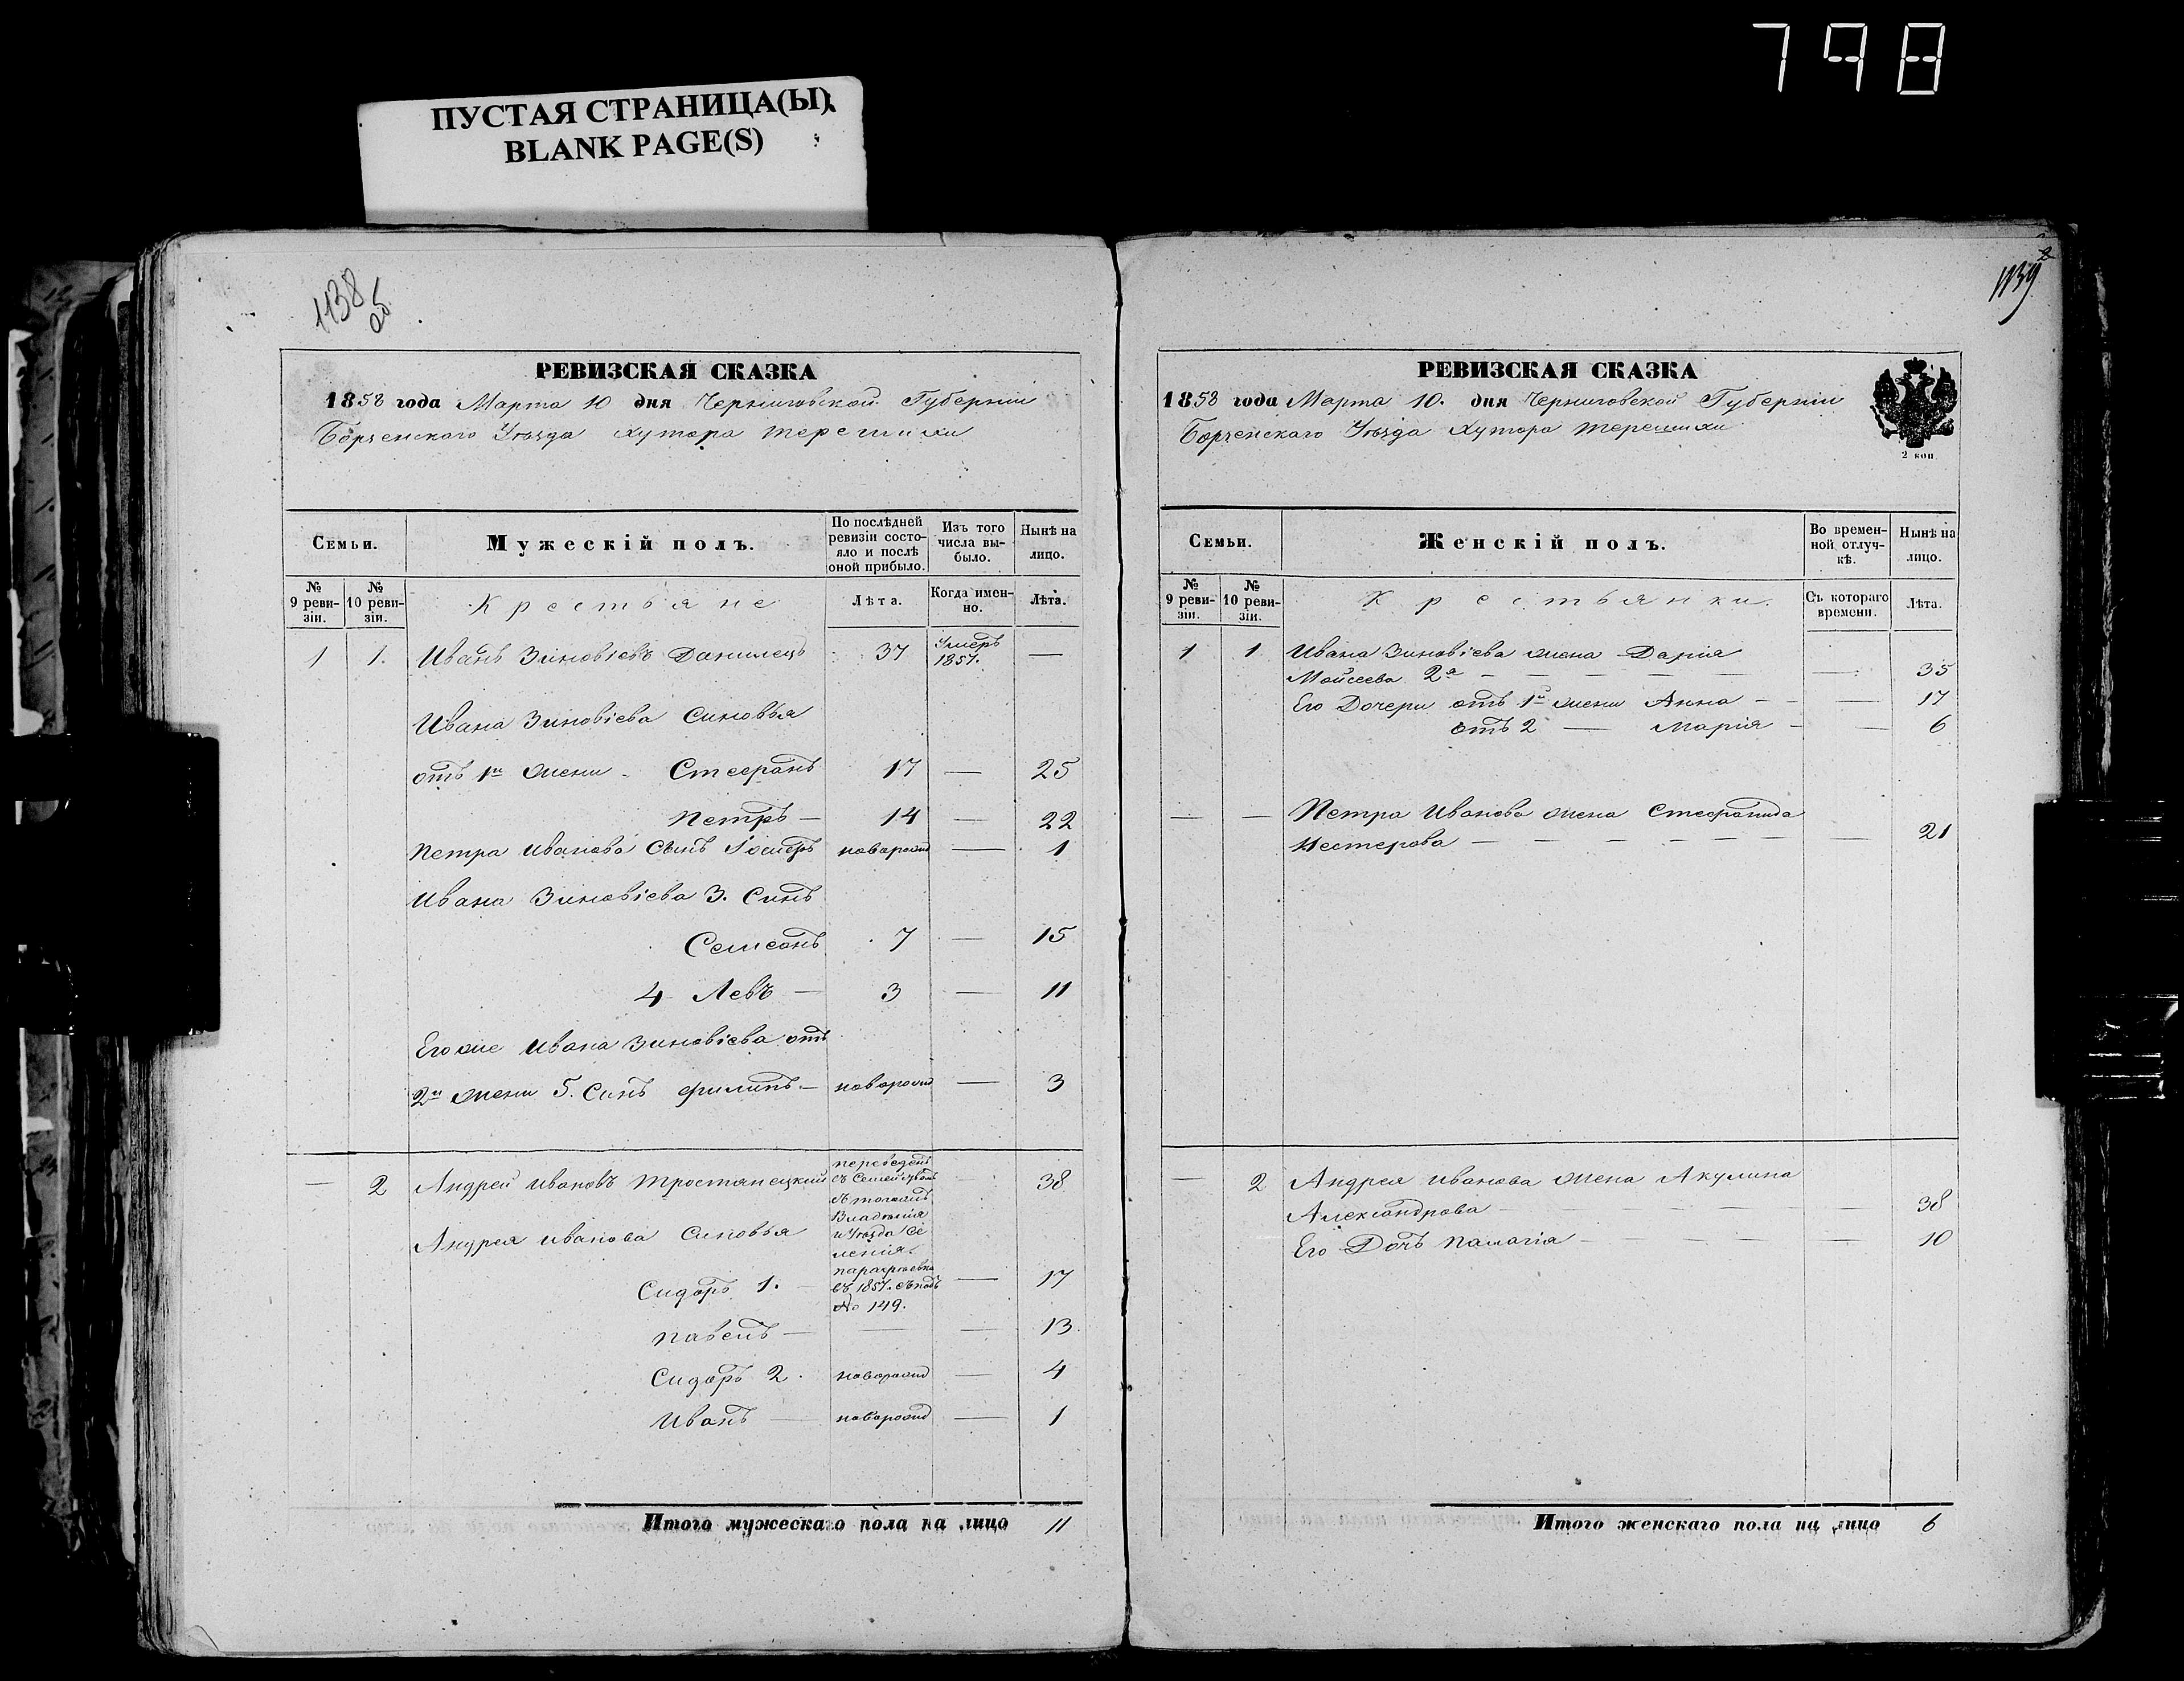 798
ПУСТАЯ СТРАНИЦА(Ы)
BLANK PAGE(S)
1138
об
РЕВИЗСКАЯ СКАЗКА
1858 года Марта 10 дня Черниговской Губерніи
Борзенскаго Уѣзда хутора Терешихи
Семьи.
Мужескій полъ.
По послѣдней ревизіи состояло и послѣ оной прибыло.
Изъ того числа выбыло.
Нынѣ на лицо.
№ 9 ревизіи.
№ 10 ревизіи.
Крестьяне
Лѣта.
Когда именно.
Лѣта.
1 1. Иванъ Зиновіевъ Данилець 37 Умеръ 1857. —
Ивана Зиновіева Синовья
отъ 1й жени - Стефанъ 17 — 25
Петръ — 14 — 22
Петра Иванова Сынъ Іосифъ новорожд — 1
Ивана Зиновіева 3. Синъ
Семіонъ 7 — 15
4 Левъ — 3 — 11
Егоже Ивана Зиновіева отъ
2й жени 5. Синъ Филипъ — новорожд — 3
— 2 Андрей Ивановъ Тростянецкий 38
переведенъ
съ Семействомъ
Владѣнія
и Уѣзда Се
ленія
въ 1857.
№ 149.
Андрея Иванова Синовья
Сидоръ 1. — 17
Павелъ — — — 13
Сидоръ 2. новорожд — 4
Иванъ — новорожд — 1
Итого мужескаго пола на лицо 11
1139
РЕВИЗСКАЯ СКАЗКА
1858 года Марта 10. дня Черниговской Губерніи
Борзенскаго Уѣзда Хутора Терешихи
2 коп
Семьи.
Женскій полъ.
Во временной отлучкѣ.
Нынѣ на лицо.
№ 9 ревизіи.
№ 10 ревизіи.
Крестьянки.
Съ котораго времени.
Лѣта.
1 1 Ивана Зиновіева жена Дарія
Мойсеева 2я — — — — — — 35
Его Дочери отъ 1й жени Анна - - — 17
отъ 2 — Марія - — 6
— — Петра Иванова жена Стефанида
Нестерова — — — — — — 21
— 2 Андрея Иванова жена Акулина
Александрова — — — — — 38
Его Дочь Палагія — — — — — 10
Итого женскаго пола на лицо 6